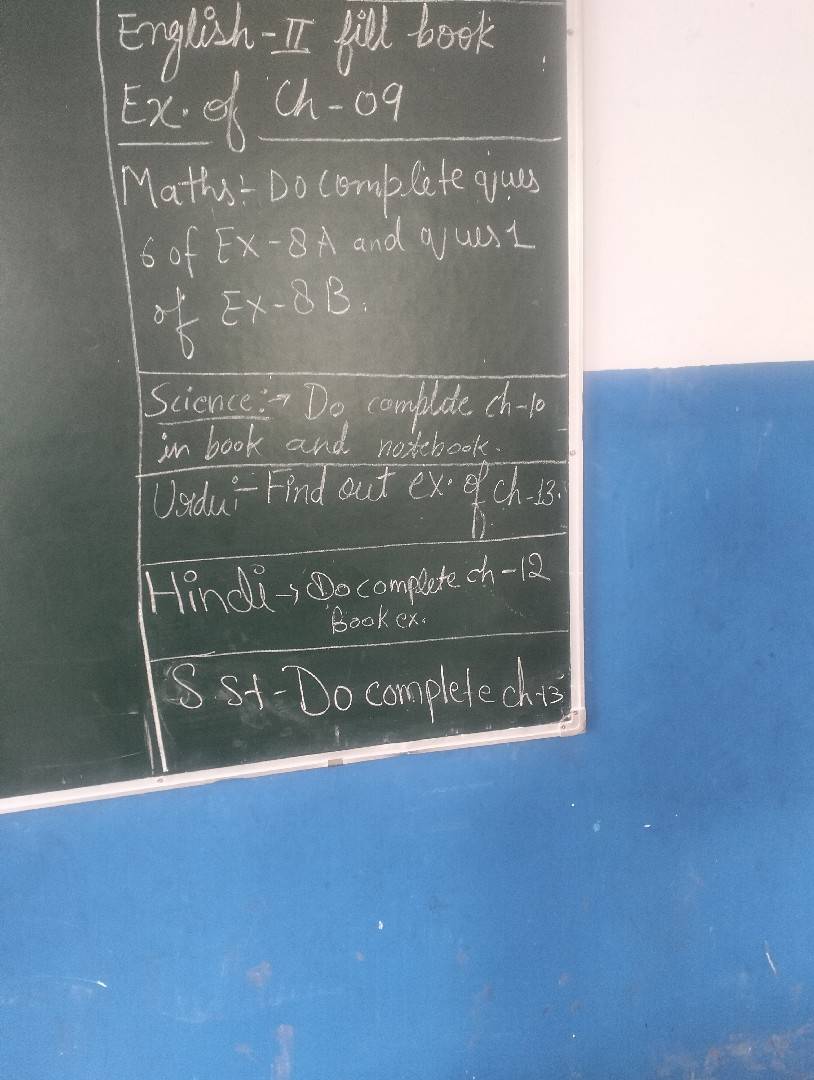 English-II fill book
Ex. of Ch-09
Maths:- Do complete ques
6 of Ex-8A and ques 1
of Ex-8B.
Science:→ Do complete ch-10
in book and notebook.
Urdu:- Find out ex. of ch-13.
Hindi → Do complete ch-12
Book ex.
S St-Do complete ch-13